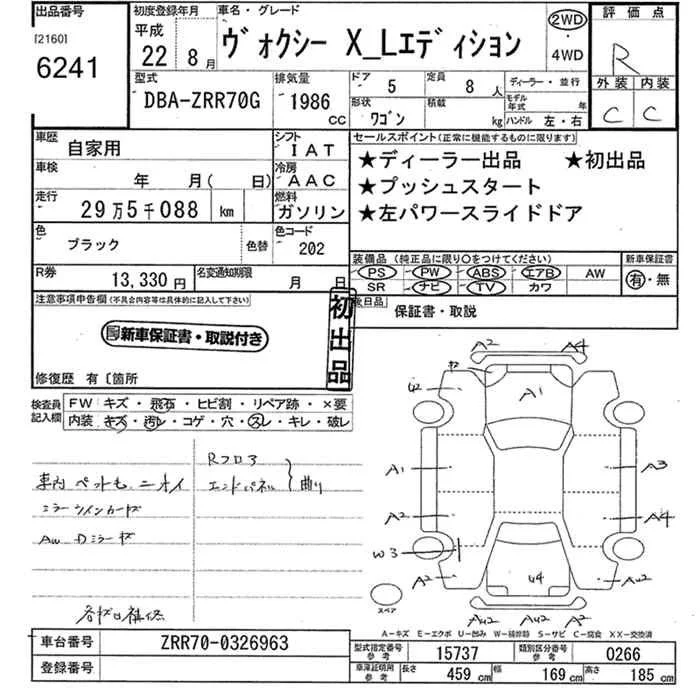 出品番号 初度登録年月 車名・グレード 2WD 評価点
[2160] 平成
6241 22 8月 ヴォクシー X_Lエディション ・4WD R
型式 排気量 ドア 5 定員 8人 ディーラー・並行 外装 内装
DBA-ZRR70G 1986 CC 形状 ワゴン 積載 kg モデル年式 年 C C
ハンドル 左・右
車歴 自家用 シフト IAT セールスポイント(正常に機能するものに限ります)
車検 年 月( 日) 冷房 AAC ★ディーラー出品 ★初出品
走行 29万5千088 km 燃料 ガソリン ★プッシュスタート
★左パワースライドドア
色 ブラック 色替 色コード 202
装備品(純正品に限り○をつけてください) 新車保証書
PS PW ABS エアB AW 有・無
R券 13,330円 名変通知期限 月 日 SR ナビ TV カワ
注意事項申告欄(不具合内容等は具体的に記入して下さい) 後日品 保証書・取説
初出品
新車保証書・取説付き
修復歴 有〔箇所
検査員記入欄 FW キズ・飛石・ヒビ割・リペア跡・×要
内装 キズ・汚レ・コゲ・穴・スレ・キレ・破レ
Rフロア
車内 ペット毛 ニオイ エンドパネル 曲り
ミラーウインカーキズ
AW Dミラーキズ
A2 A4
U2 A1
A1 A3
A2 A4
W3
A2 U4 AU2
スペア AU2 AU2 A2
A-キズ E-エクボ U-凹み W-補修跡 S-サビ C-腐食 XX-交換済
車台番号 ZRR70-0326963 型式指定番号参考 15737 類別区分番号参考 0266
登録番号 車庫証明用参考 長さ 459 cm 幅 169 cm 高さ 185 cm